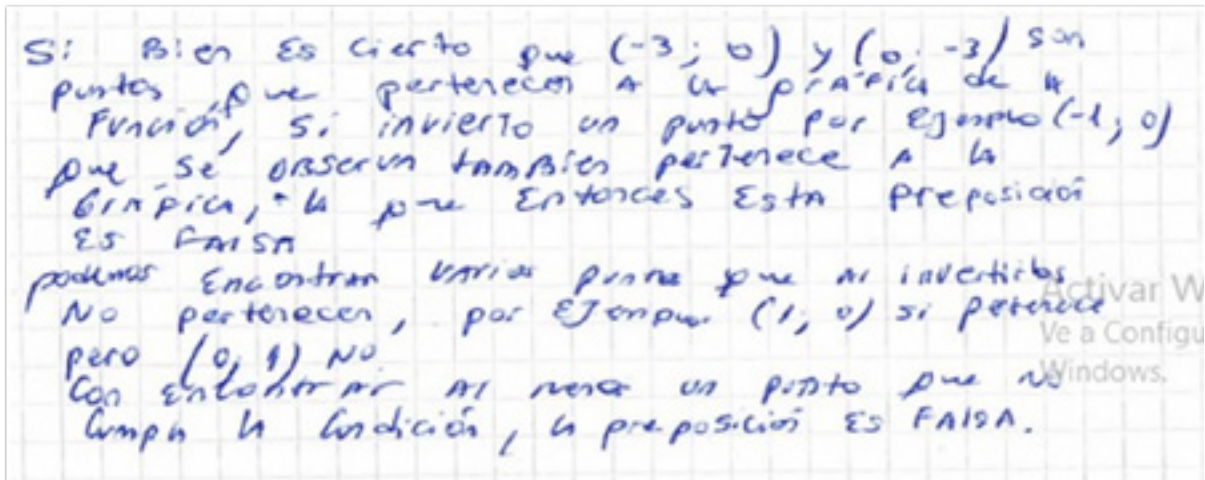 Si Bien Es cierto que (-3; 0) y (0; -3) son
puntos que pertenecen A la gráfica de la
Función, Si invierto un punto por Ejemplo (-1; 0)
que se observa tamBien pertenece A la
Gráfica, la que Entonces Esta Preposición
ES FAlSA
podemos Encontrar varios puntos que Al invertirlos
No pertenecen, por EJemplo (1; 0) si petenece
pero (0, 1) NO
Con Encontrar Al menos un punto que NO
Cumpla la Condición, la preposición Es FAlSA.
Activar W
Ve a Configu
Windows.